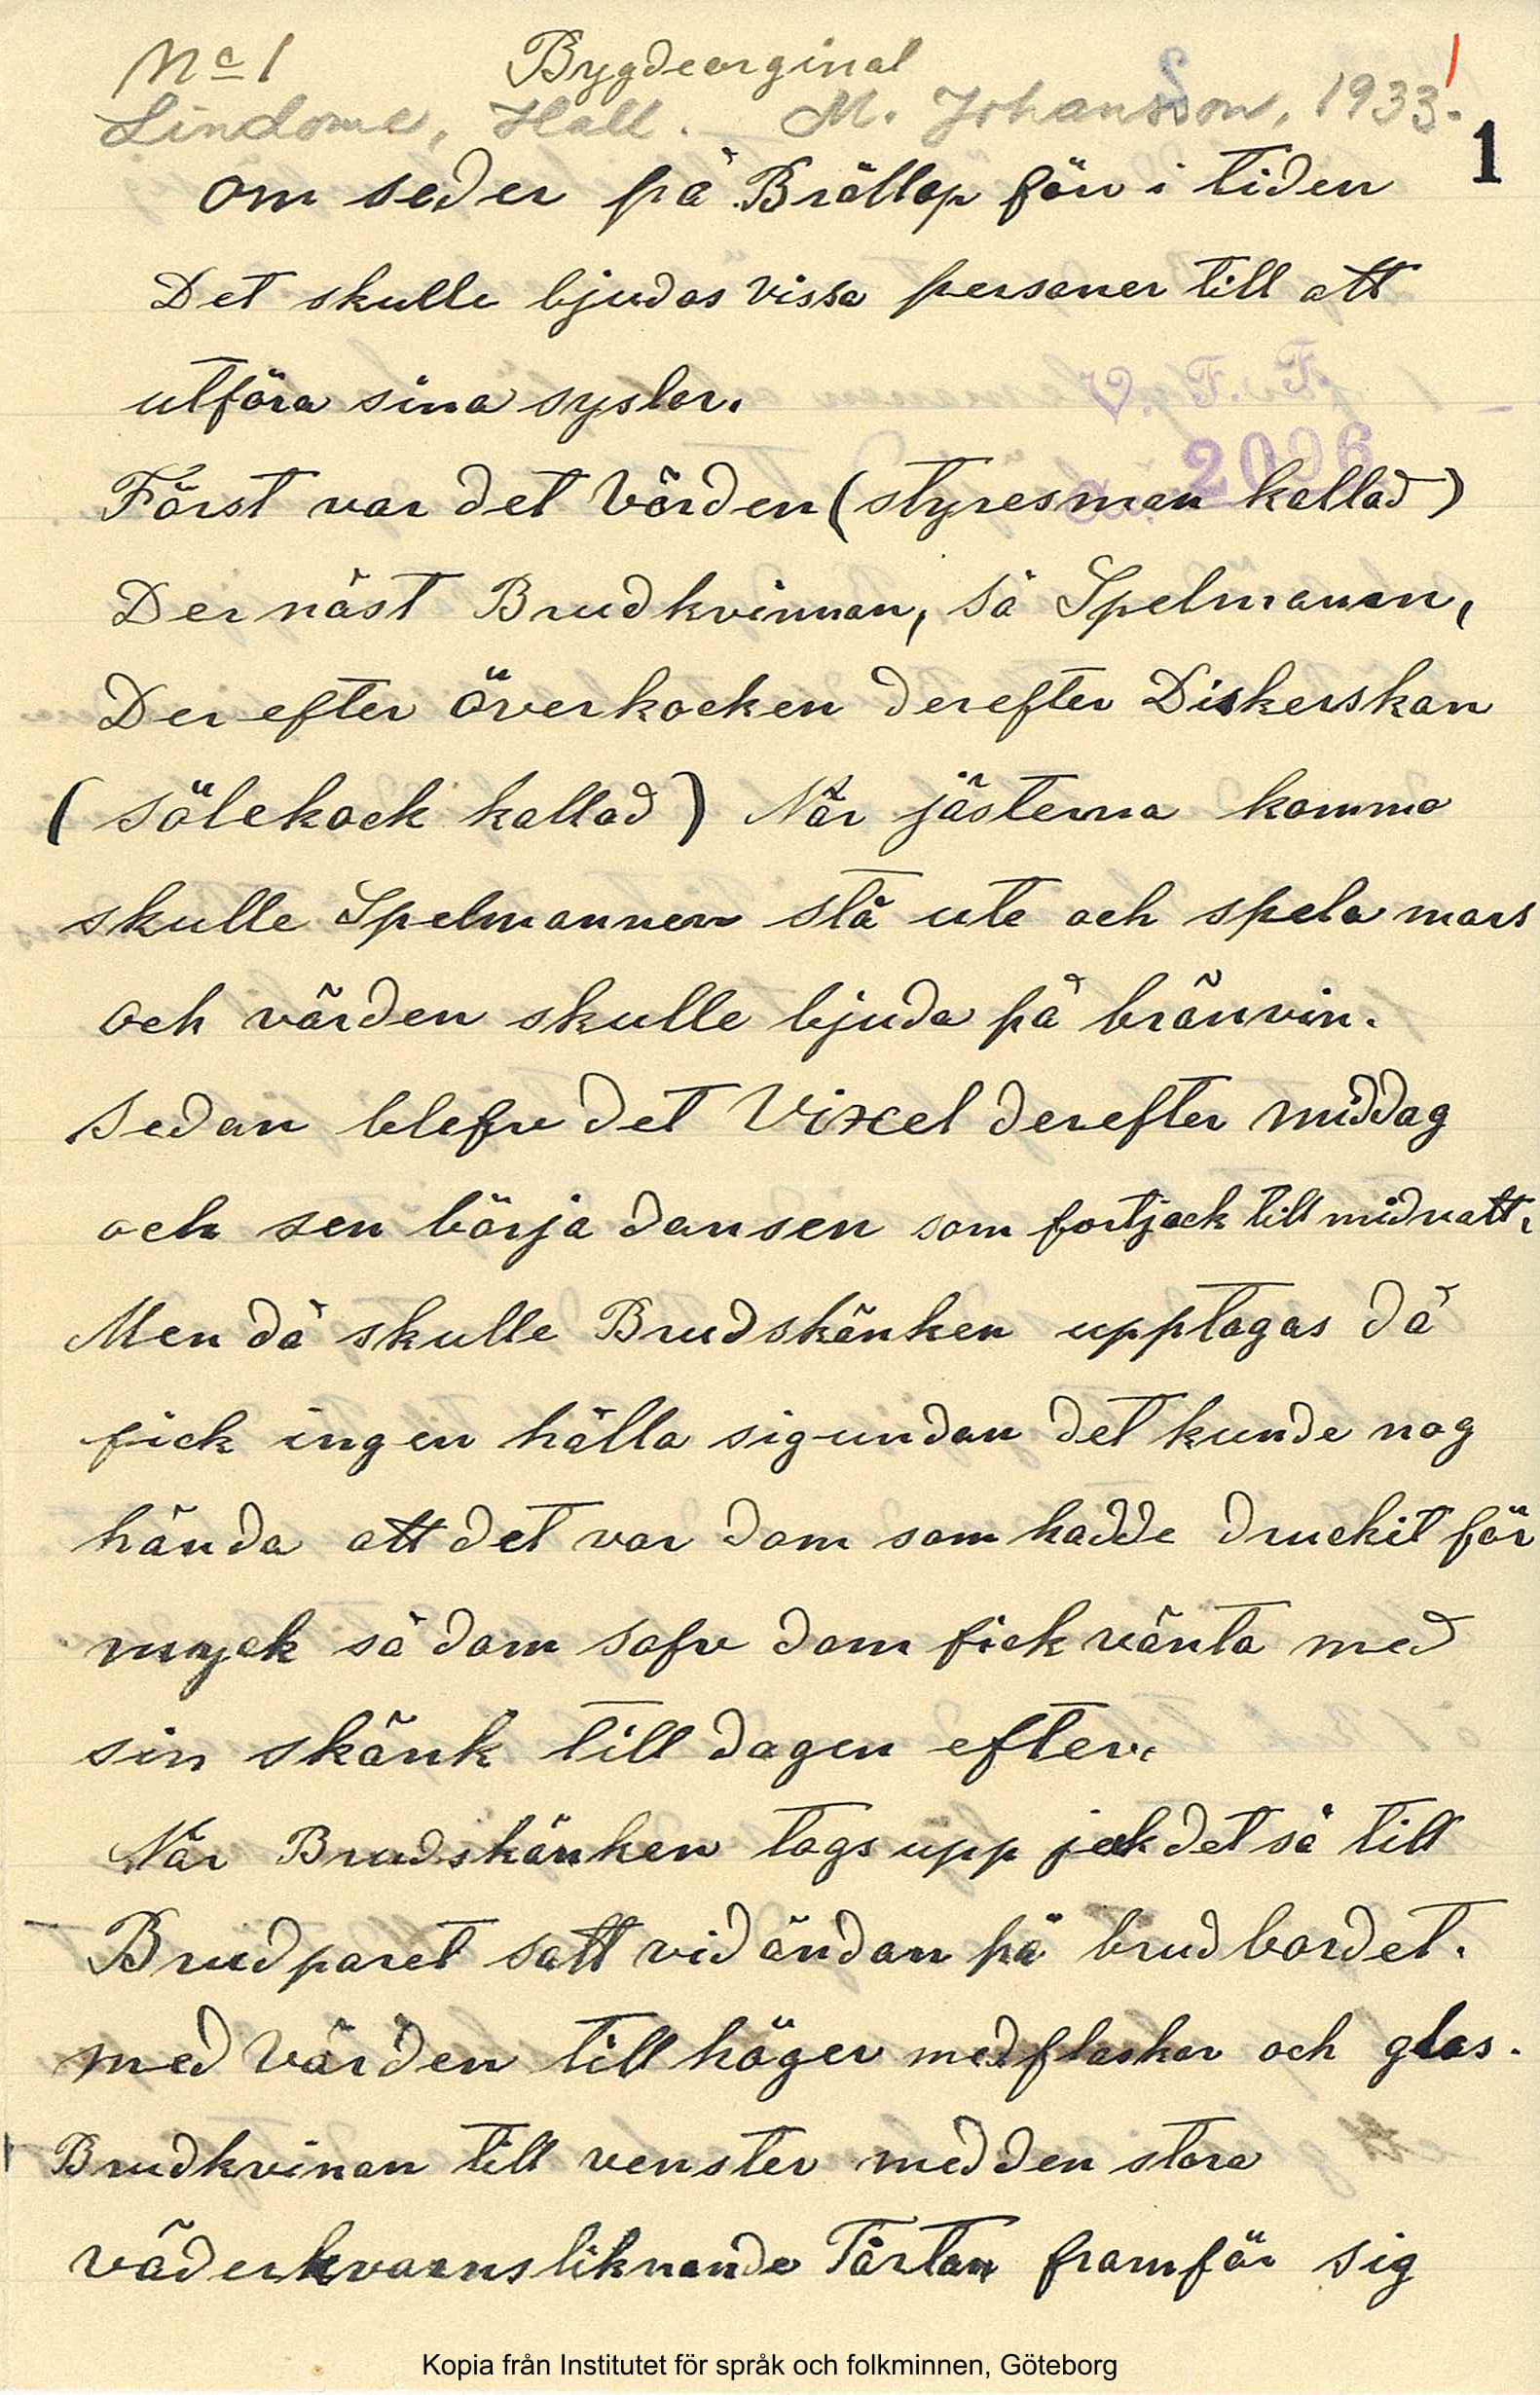 No 1 Bygdeorginal 1
Lindome, Hall. M. Johansson, 1933.
1
om seder på Bröllop förr i tiden
Det skulle bjudas vissa personer till att
utföra sina syslor.
V. F. F.
2096
Först var det Värden (styresman kallad)
Der näst Brudkvinnan, så Spelmanen,
Der efter överkocken derefter Diskerskan
(sölekock kallad) När jästerna komma
skulle Spelmannen stå ute och spela mars
och värden skulle bjuda på bränvin.
Sedan blefv det Vixel derefter middag
och sen börja dansen som fortjack till midnatt.
Men då skulle Brudskänken upptagas då
fick ingen hålla sig undan det kunde nog
hända att det var dom som hadde druckit för
myck så dom sofv dom fick vänta med
sin skänk till dagen efter.
När Brudskänken togs upp jek det så till
Brudparet satt vid ändan på brudbordet.
med Värden till höger med flaskor och glas.
Brudkvinan till venster med den stora
väderkvarnsliknande Tårtan framför sig
Kopia från Institutet för språk och folkminnen, Göteborg